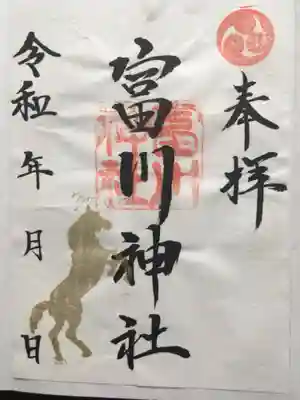 奉拝
富川神社
令和 年 月 日